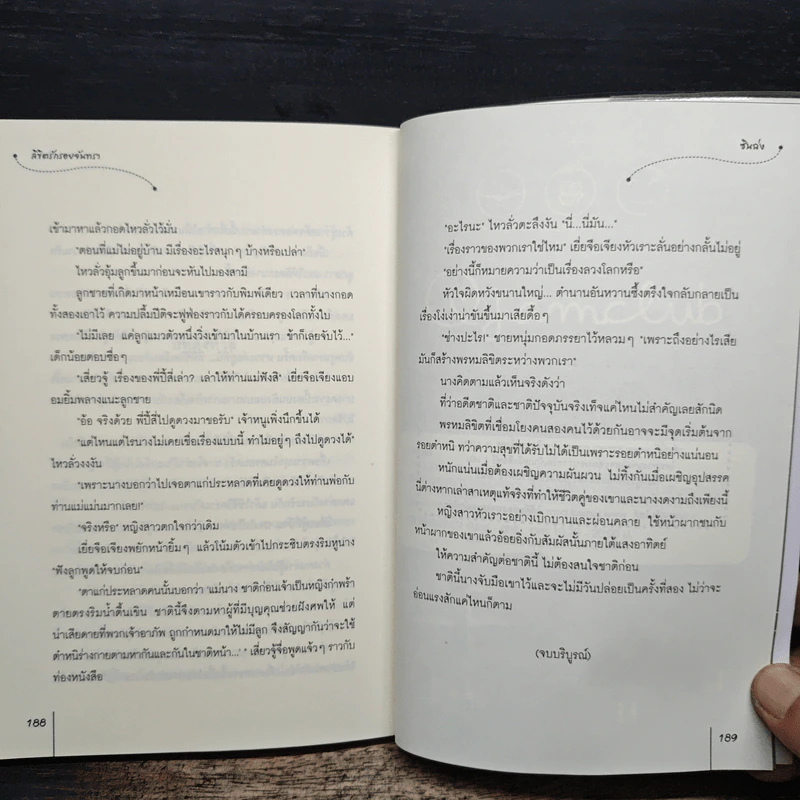 ลิขิตรักรอยจันทรา
เข้ามาหาแล้วกอดไหวลั่วไว้มั่น
"ตอนที่แม่ไม่อยู่บ้าน มีเรื่องอะไรสนุกๆ บ้างหรือเปล่า"
ไหวลั่วอุ้มลูกขึ้นมาก่อนจะหันไปมองสามี
ลูกชายที่เกิดมาหน้าเหมือนเขาราวกับพิมพ์เดียว เวลาที่นางกอด
ทั้งสองเอาไว้ ความปลื้มปีติจะฟูฟ่องราวกับได้ครอบครองโลกทั้งใบ
"ไม่มีเลย แค่ลูกแมวตัวหนึ่งวิ่งเข้ามาในบ้านเรา ข้าก็เลยจับไว้..."
เด็กน้อยตอบซื่อๆ
"เสี่ยวจู้ เรื่องของพี่ปี้สี่เล่า? เล่าให้ท่านแม่ฟังสิ" เยี่ยจือเจียงแอบ
อมยิ้มพลางแนะลูกชาย
"อ้อ จริงด้วย พี่ปี้สี่ไปดูดวงมาขอรับ" เจ้าหนูเพิ่งนึกขึ้นได้
"แต่ไหนแต่ไรนางไม่เคยเชื่อเรื่องแบบนี้ ทำไมอยู่ๆ ถึงไปดูดวงได้"
ไหวลั่วงงงัน
"เพราะนางบอกว่าไปเจอตาแก่ประหลาดที่เคยดูดวงให้ท่านพ่อกับ
ท่านแม่แม่นมากเลย!"
"จริงหรือ" หญิงสาวตกใจกว่าเดิม
เยี่ยจือเจียงพยักหน้ายิ้มๆ แล้วโน้มตัวเข้าไปกระซิบตรงริมหูนาง
"ฟังลูกพูดให้จบก่อน"
"ตาแก่ประหลาดคนนั้นบอกว่า 'แม่นาง ชาติก่อนเจ้าเป็นหญิงกำพร้า
ตายตรงริมน้ำตื้นเขิน ชาตินี้จึงตามหาผู้ที่มีบุญคุณช่วยฝังศพให้ แต่
น่าเสียดายที่พวกเจ้าอาภัพ ถูกกำหนดมาให้ไม่มีลูก จึงสัญญากันว่าจะใช้
ตำหนิร่างกายตามหากันและกันในชาติหน้า...' " เสี่ยวจู้จื่อพูดแจ้วๆ ราวกับ
ท่องหนังสือ
188
ชินฉง
"อะไรนะ" ไหวลั่วตะลึงงัน "นี่...นี่มัน..."
"เรื่องราวของพวกเราใช่ไหม" เยี่ยจือเจียงหัวเราะลั่นอย่างกลั้นไม่อยู่
"อย่างนี้ก็หมายความว่าเป็นเรื่องลวงโลกหรือ"
หัวใจผิดหวังขนานใหญ่... ตำนานอันหวานซึ้งตรึงใจกลับกลายเป็น
เรื่องโง่เง่าน่าขันขึ้นมาเสียดื้อๆ
"ช่างปะไร!" ชายหนุ่มกอดภรรยาไว้หลวมๆ "เพราะถึงอย่างไรเสีย
มันก็สร้างพรหมลิขิตระหว่างพวกเรา"
นางคิดตามแล้วเห็นจริงดังว่า
ที่ว่าอดีตชาติและชาติปัจจุบันจริงเท็จแค่ไหนไม่สำคัญเลยสักนิด
พรหมลิขิตที่เชื่อมโยงคนสองคนไว้ด้วยกันอาจจะมีจุดเริ่มต้นจาก
รอยตำหนิ ทว่าความสุขที่ได้รับไม่ได้เป็นเพราะรอยตำหนิอย่างแน่นอน
หนักแน่นเมื่อต้องเผชิญความผันผวน ไม่ทิ้งกันเมื่อเผชิญอุปสรรค
นี่ต่างหากเล่าสาเหตุแท้จริงที่ทำให้ชีวิตคู่ของเขาและนางงดงามถึงเพียงนี้
หญิงสาวหัวเราะอย่างเบิกบานและผ่อนคลาย ใช้หน้าผากชนกับ
หน้าผากของเขาแล้วอ้อยอิ่งกับสัมผัสนั้นภายใต้แสงอาทิตย์
ให้ความสำคัญต่อชาตินี้ ไม่ต้องสนใจชาติก่อน
ชาตินี้นางจับมือเขาไว้และจะไม่มีวันปล่อยเป็นครั้งที่สอง ไม่ว่าจะ
อ่อนแรงสักแค่ไหนก็ตาม
(จบบริบูรณ์)
189